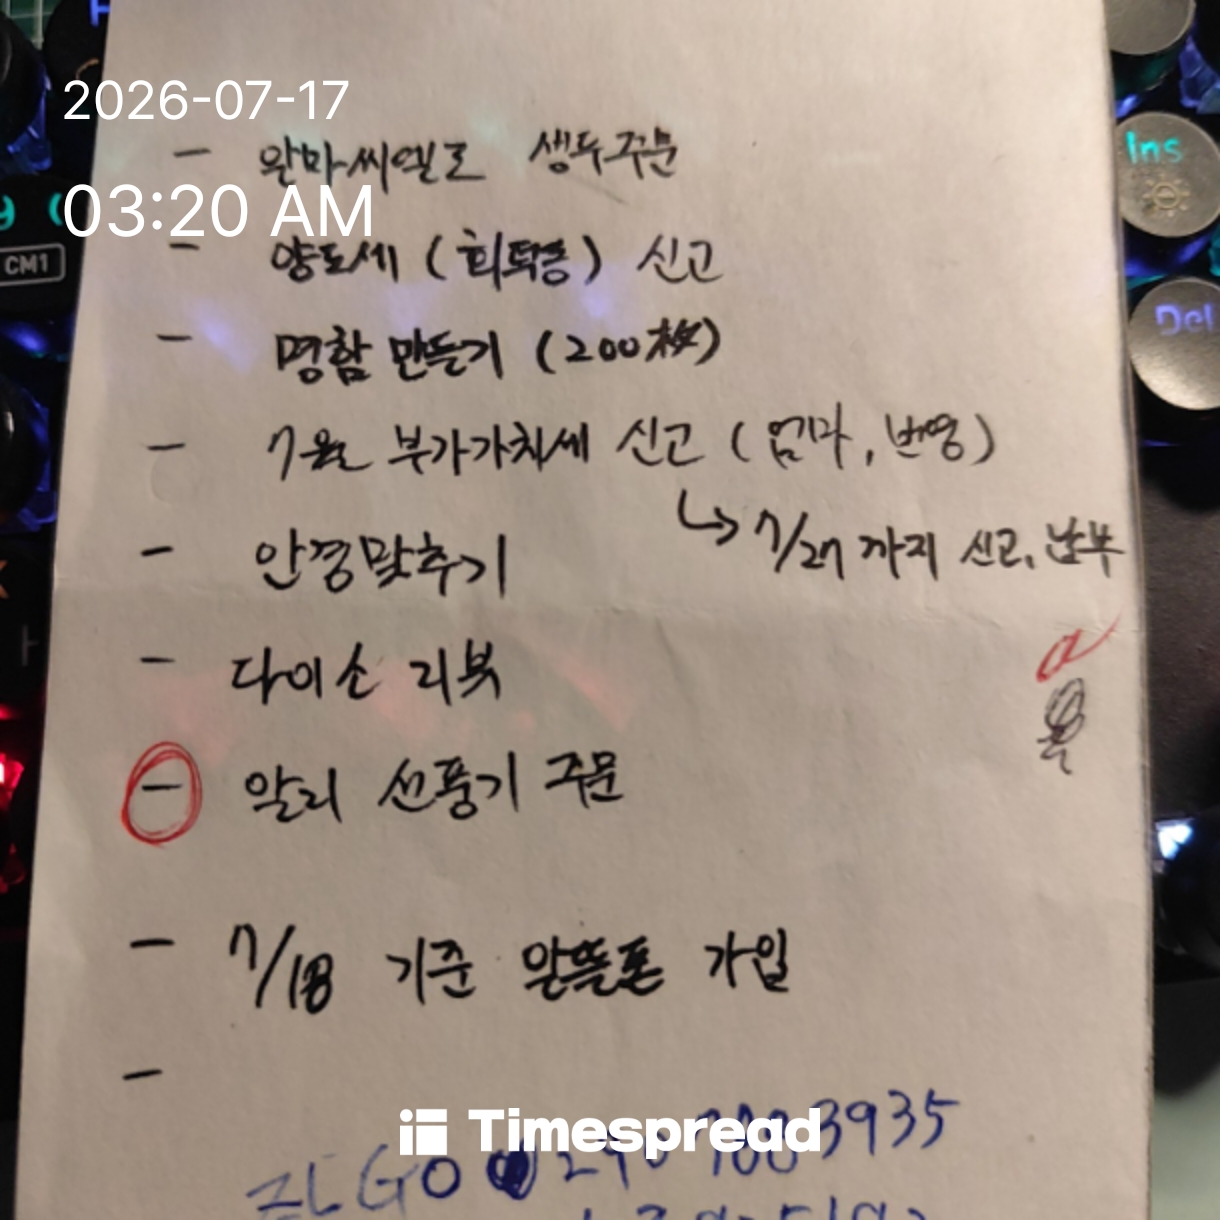 2026-07-17
- 완마씨엘로 생두주문
03:20 AM
CM1
Ins
- 양도세 (회덕동) 신고
Del
- 명함 만들기 (200枚)
- 7월 부가가치세 신고 (엄마, 번영)
↳ 7/27 까지 신고, 납부
- 안경맞추기
- 다이소 리뷰
- 알리 선풍기 주문
- 7/18 기준 알뜰폰 가입
-
Timespread
3935
GO